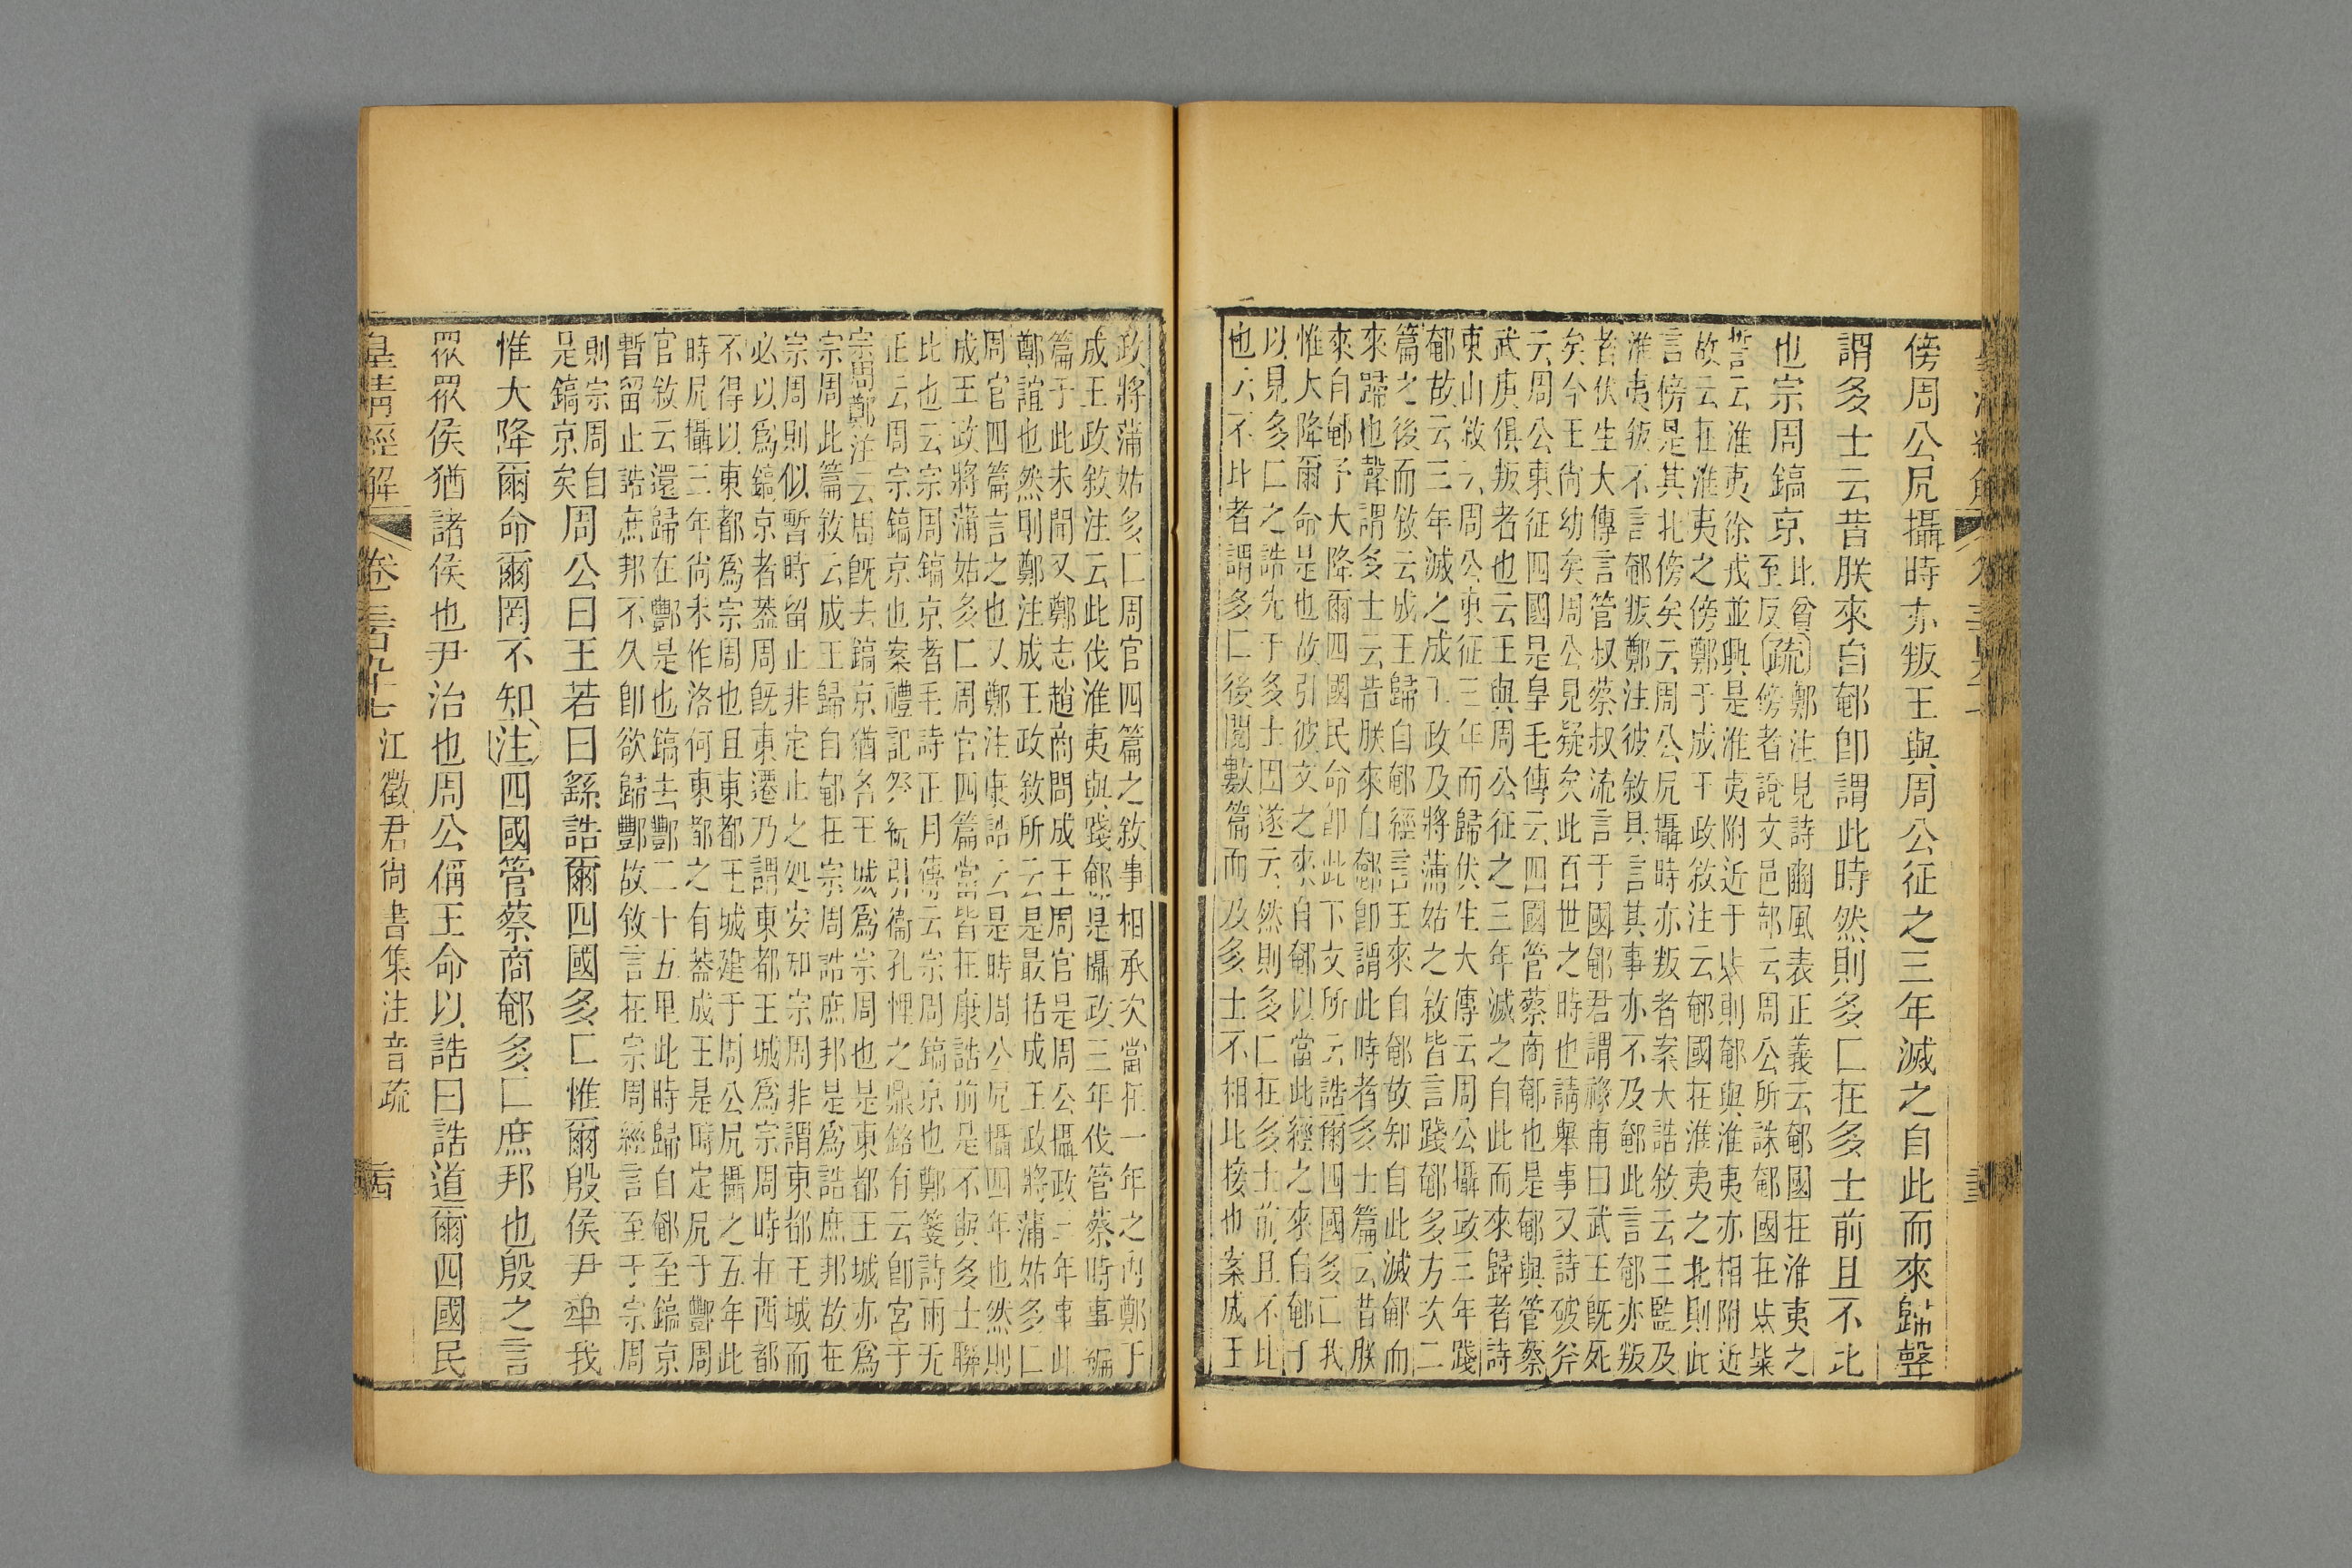 傍周公凥攝時亦叛王與周公征之三年滅之自此而來歸聲
謂多士云昔朕來自郼卽謂此時然則多匚在多士前且不比
也宗周鎬京
比曾
至反
疏鄭注見詩豳風表正義云郼國在淮夷之
傍者說文邑部云周公所誅郼國在
誓云淮夷徐戎並興是淮夷附近于
則郼與淮夷亦相附近
故云在淮夷之傍鄭于成王政敘注云郼國在淮夷之北則此
言傍是其北傍矣云周公凥攝時亦叛者案大誥敘云三監及
淮夷叛不言郼叛鄭注彼敘具言其事亦不及郼此言郼亦叛
者伏生大傳言管叔蔡叔流言于國郼君謂祿甫曰武王旣死
矣今王尙幼矣周公見疑矣此百世之時也請舉事又詩破斧
云周公東征四國是皇毛傳云四國管蔡商郼也是郼與管蔡
武庚俱叛者也云王與周公征之三年滅之自此而來歸者詩
東山敘云周公東征三年而歸伏生大傳云周公攝政三年踐
郼故云三年滅之成王政及將蒲姑之敘皆言踐郼多方次二
篇之後而敘云成王歸自郼經言王來自郼故知自此滅郼而
來歸也聲謂多士云昔朕來自郼卽謂此時者多士篇云昔朕
來自郼予大降爾四國民命卽此下文所云誥爾四國多匚我
惟大降爾命是也故引彼文之來自郼以當此經之來自郼于
以見多匚之誥先于多士因遂云然則多匚在多士前且不比
也云不比者謂多匚後閒數篇而及多士不相比接也案成王
政將蒲姑多匚周官四篇之敘事相承次當在一年之內鄭于
成王政敘注云此伐淮夷與踐郼是攝政三年伐管蔡時事編
篇于此未聞又鄭志趙商問成王周官是周公攝政三年事此
鄭誼也然則鄭注成王政敘所云是最括成王政將蒲姑多匚
周官四篇言之也又鄭注康誥云是時周公凥攝四年也然則
成王政將蒲姑多匚周官四篇當皆在康誥前是不與多士聯
比也云宗周鎬京者毛詩正月傳云宗周鎬京也鄭箋詩雨无
正云周宗鎬京也案禮記祭統引衞孔悝之鼎銘有云卽宮于
宗周鄭注云周旣去鎬京猶名王城爲宗周也是東都王城亦爲
宗周此篇敘云成王歸自郼在宗周誥庶邦是爲誥庶邦故在
宗周則似暫時留止非定止之処安知宗周非謂東都王城而
必以爲鎬京者葢周旣東遷乃謂東都王城爲宗周時在西都
不得以東都爲宗周也且東都王城建于周公凥攝之五年此
時凥攝三年尙未作洛何東都之有葢成王是時定凥于酆周
官敘云還歸在酆是也鎬去酆二十五里此時歸自郼至鎬京
暫留止誥庶邦不久卽欲歸酆故敘言在宗周經言至于宗周
則宗周自
是鎬京矣
周公曰王若曰繇誥爾四國多匚惟爾殷侯尹𠦬我
惟大降爾命爾罔不知注四國管蔡商郼多匚庶邦也殷之言
眾眾侯猶諸侯也尹治也周公偁王命以誥曰誥道爾四國民
皇淸經解
卷三百九十七
江徵君尙書集注音疏